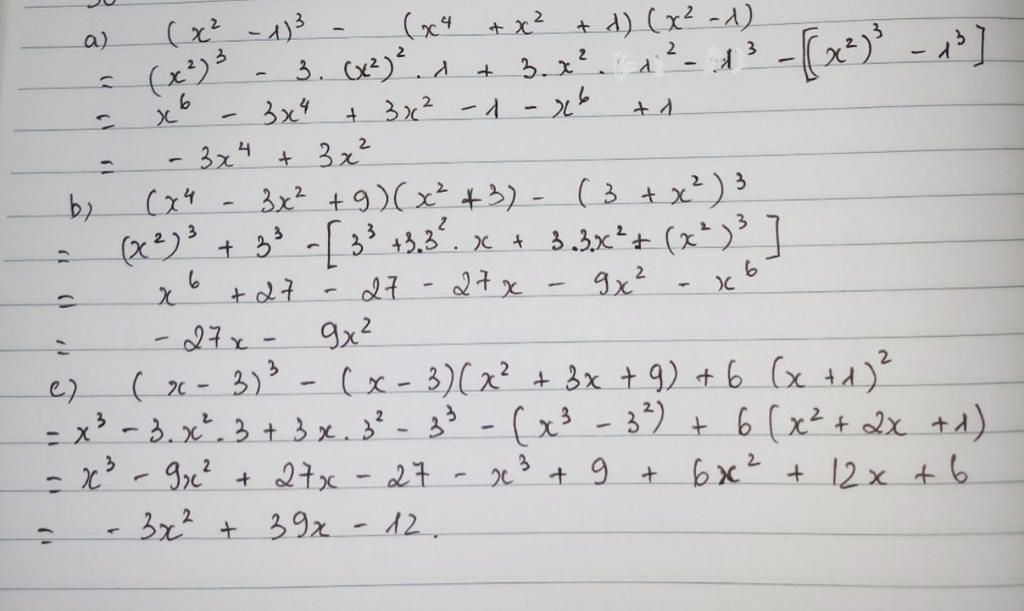 a) (x² - 1)³ - (x⁴ + x² + 1)(x² - 1)
= (x²)³ - 3.(x²)².1 + 3.x².1² - 1³ - [(x²)³ - 1³]
= x⁶ - 3x⁴ + 3x² - 1 - x⁶ + 1
= - 3x⁴ + 3x²
b) (x⁴ - 3x² + 9)(x² + 3) - (3 + x²)³
= (x²)³ + 3³ - [3³ + 3.3².x + 3.3x² + (x²)³]
= x⁶ + 27 - 27 - 27x - 9x² - x⁶
= - 27x - 9x²
c) (x - 3)³ - (x - 3)(x² + 3x + 9) + 6 (x + 1)²
= x³ - 3.x².3 + 3x.3² - 3³ - (x³ - 3²) + 6(x² + 2x + 1)
= x³ - 9x² + 27x - 27 - x³ + 9 + 6x² + 12x + 6
= - 3x² + 39x - 12.